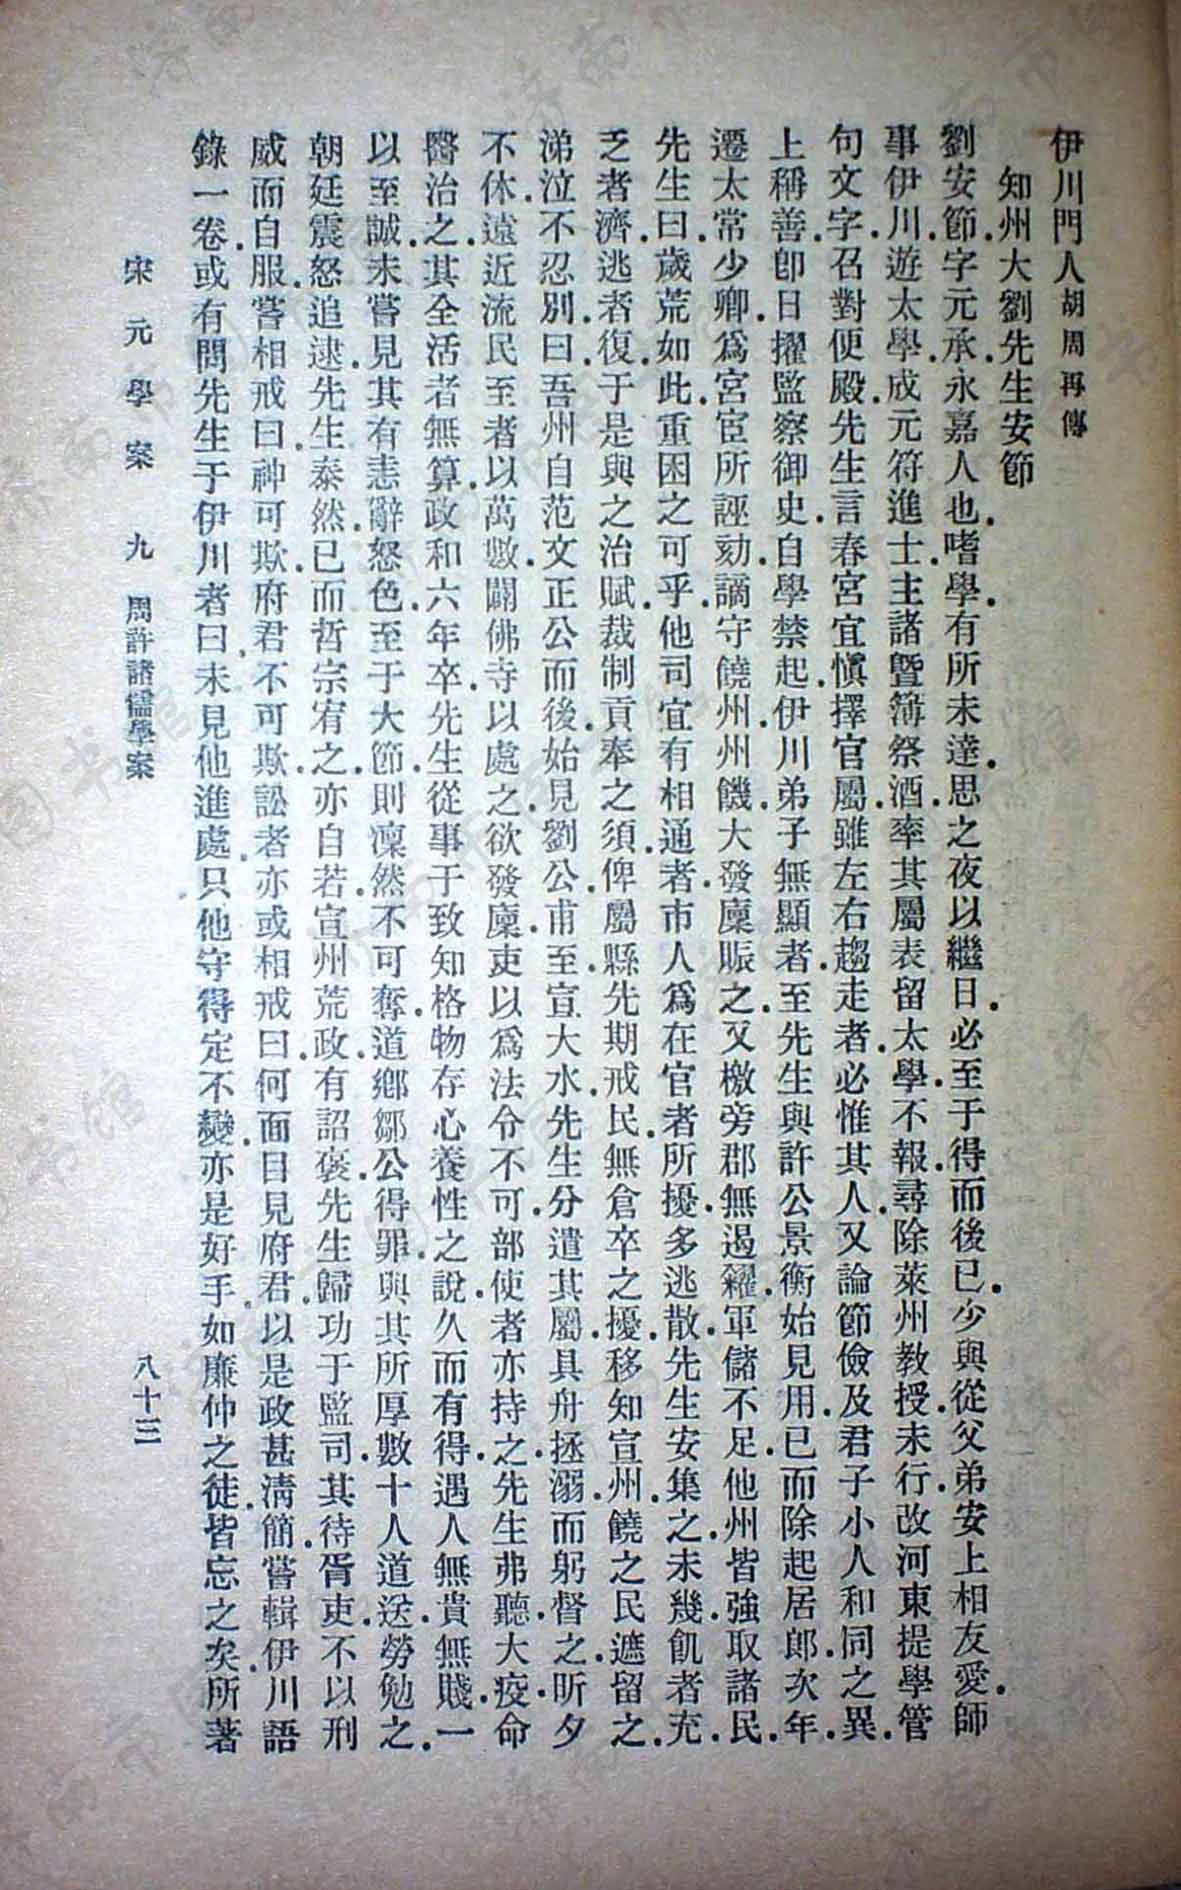 伊川門人胡周再傳
知州大劉先生安節
劉安節字元承永嘉人也嗜學有所未達思之夜以繼日必至于得而後已少與從父弟安上相友愛師
事伊川遊太學成元符進士主諸曁簿祭酒率其屬表留太學不報尋除萊州教授未行改河東提學管
句文字召對便殿先生言春宮宜愼擇官屬雖左右趨走者必惟其人又論節儉及君子小人和同之異
上稱善卽日擢監察御史自學禁起伊川弟子無顯者至先生與許公景衡始見用已而除起居郎次年
遷太常少卿爲宮宦所誣劾謫守饒州州饑大發廩賑之又檄旁郡無遏糴軍儲不足他州皆強取諸民
先生曰歲荒如此重困之可乎他司宜有相通者市人爲在官者所擾多逃散先生安集之未幾飢者充
乏者濟逃者復于是與之治賦裁制貢奉之須俾屬縣先期戒民無倉卒之擾移知宣州饒之民遮留之
涕泣不忍別曰吾州自范文正公而後始見劉公甫至宣大水先生分遣其屬具舟拯溺而躬督之昕夕
不休遠近流民至者以萬數闢佛寺以處之欲發廩吏以爲法令不可部使者亦持之先生弗聽大疫命
醫治之其全活者無算政和六年卒先生從事于致知格物存心養性之說久而有得遇人無貴無賤一
以至誠未嘗見其有恚辭怒色至于大節則凜然不可奪道鄕鄒公得罪與其所厚數十人道送勞勉之
朝廷震怒追逮先生泰然已而哲宗宥之亦自若宣州荒政有詔褒先生歸功于監司其待胥吏不以刑
威而自服嘗相戒曰神可欺府君不可欺訟者亦或相戒曰何面目見府君以是政甚淸簡嘗輯伊川語
錄一卷或有問先生于伊川者曰未見他進處只他守得定不變亦是好手如廉仲之徒皆忘之矣所著
宋元學案 九 周許諸儒學案 八十三